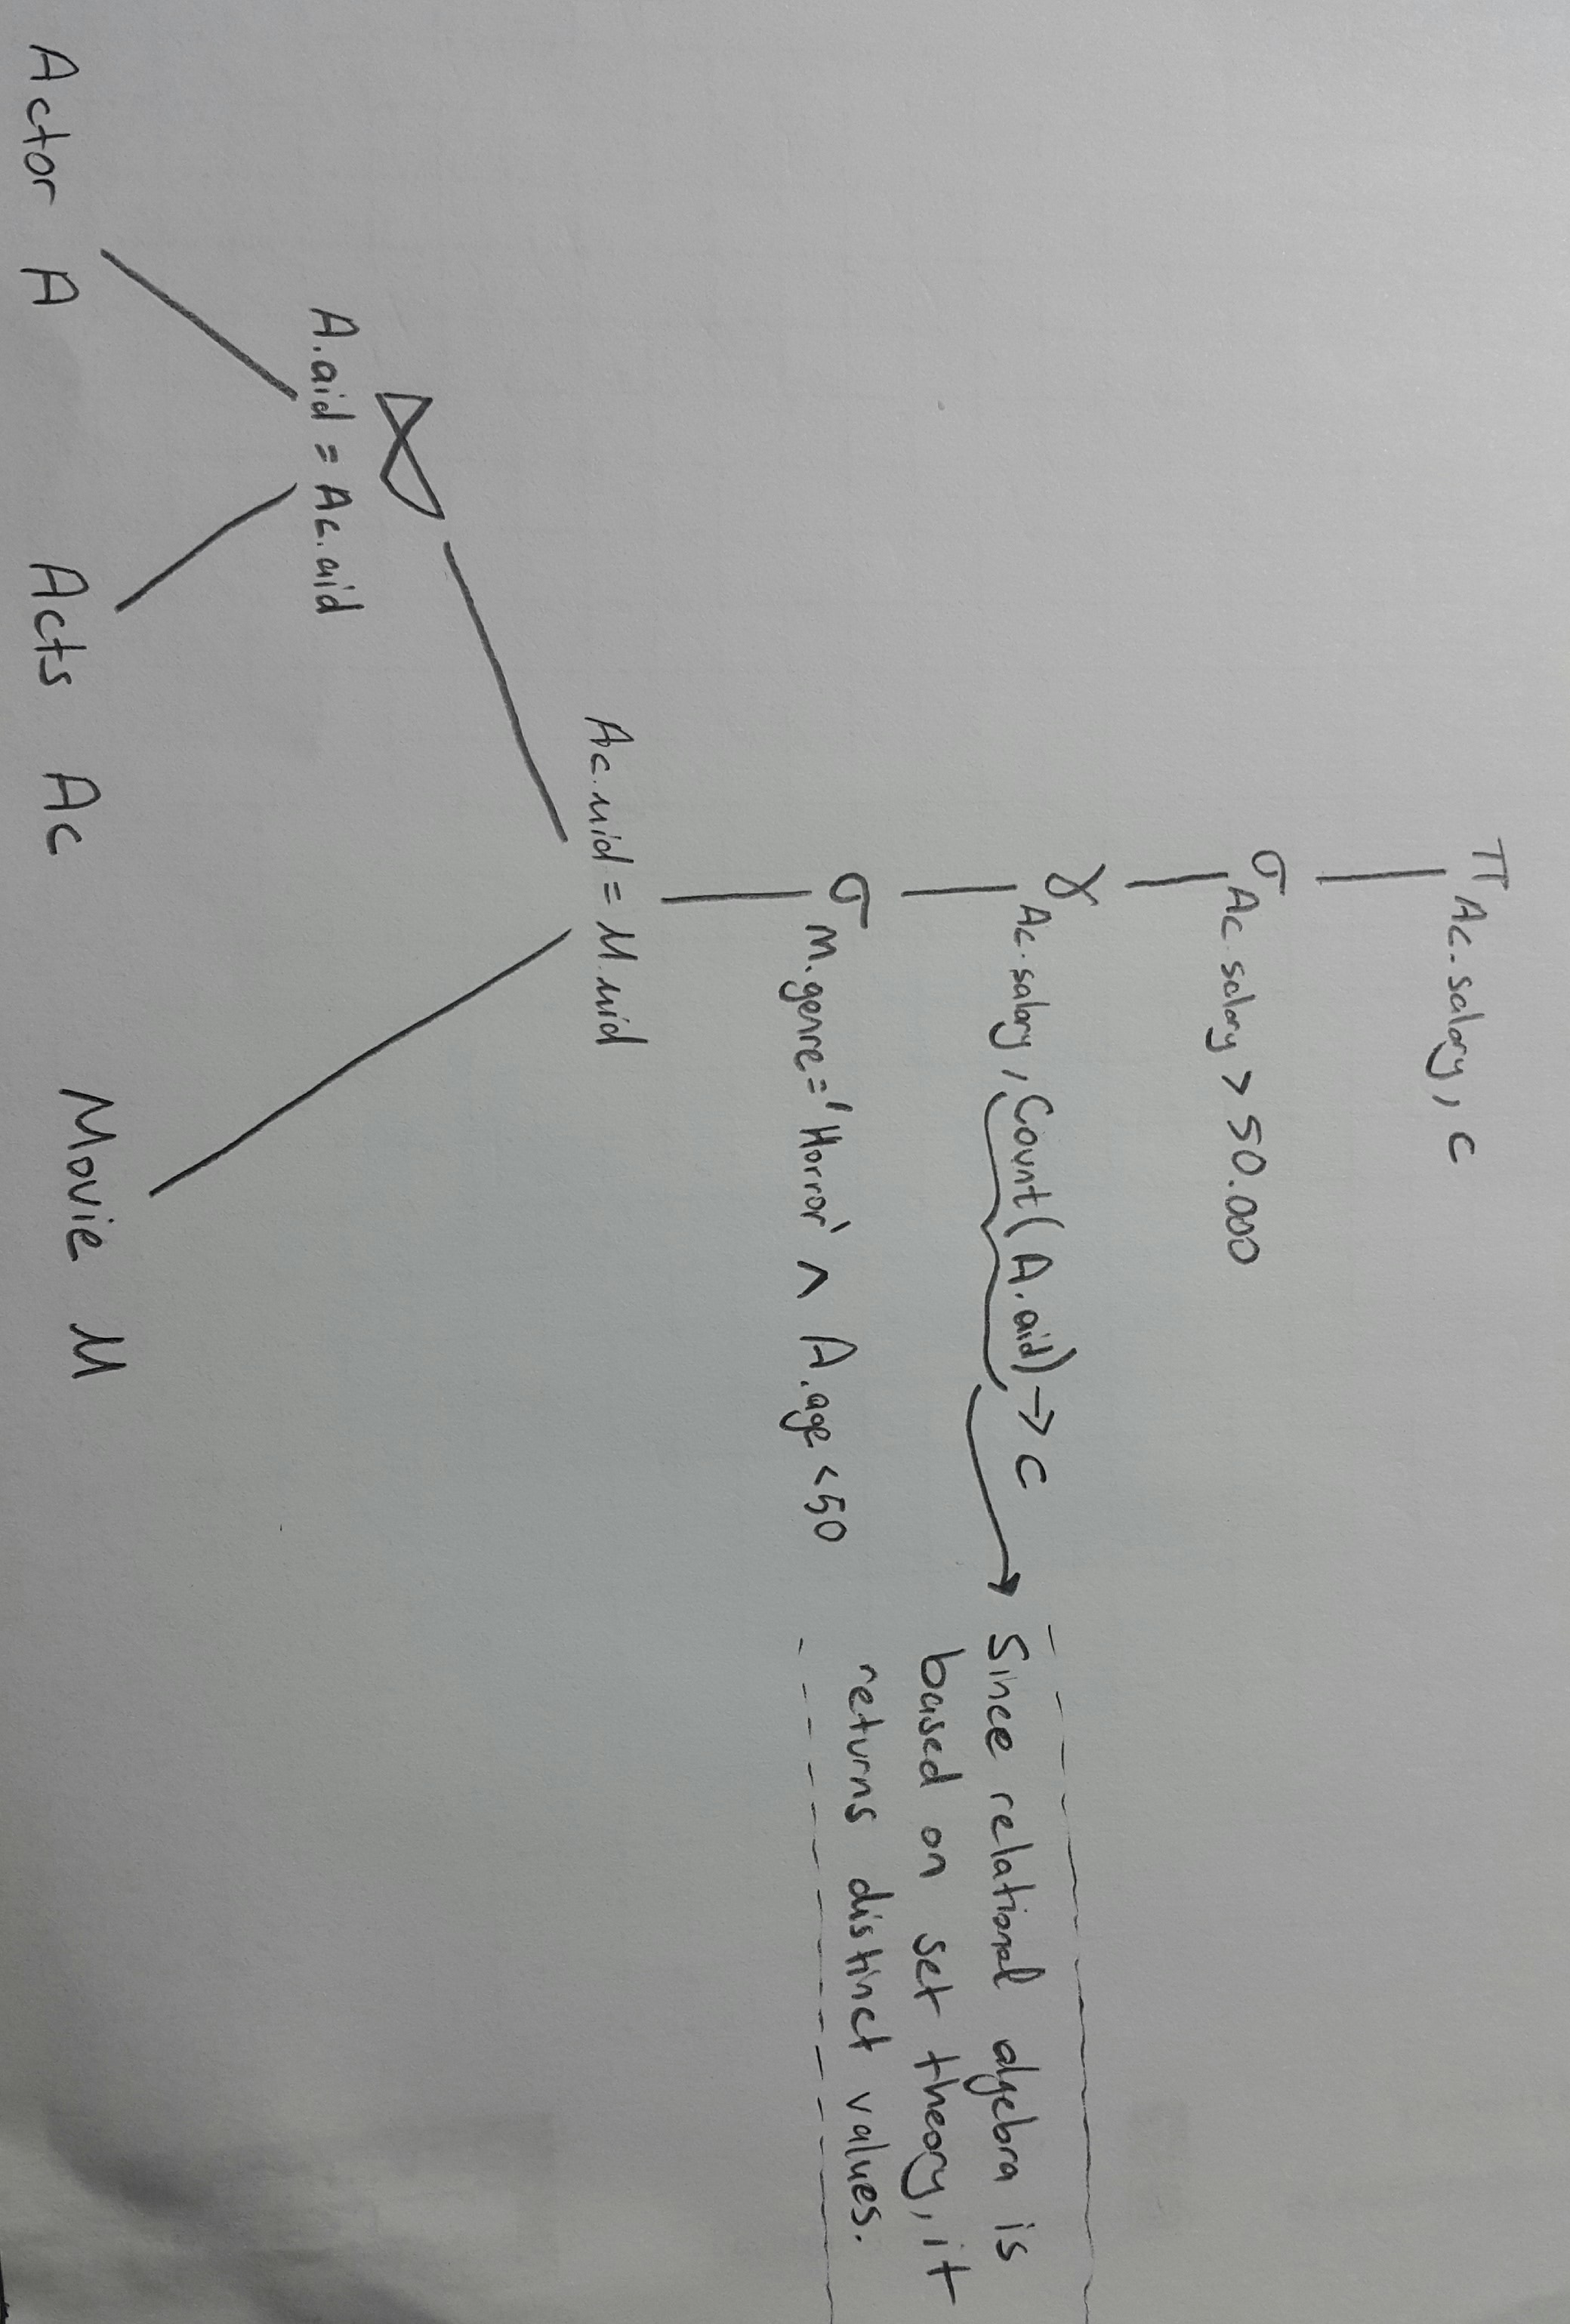 π Ac.salary, c
σ Ac.salary > 50.000
γ Ac.salary, Count(A.aid) → c
Since relational algebra is
based on set theory, it
returns distinct values.
σ M.genre='Horror' ∧ A.age < 50
Ac.mid = M.mid
⋈
A.aid = Ac.aid
Actor A
Acts Ac
Movie M